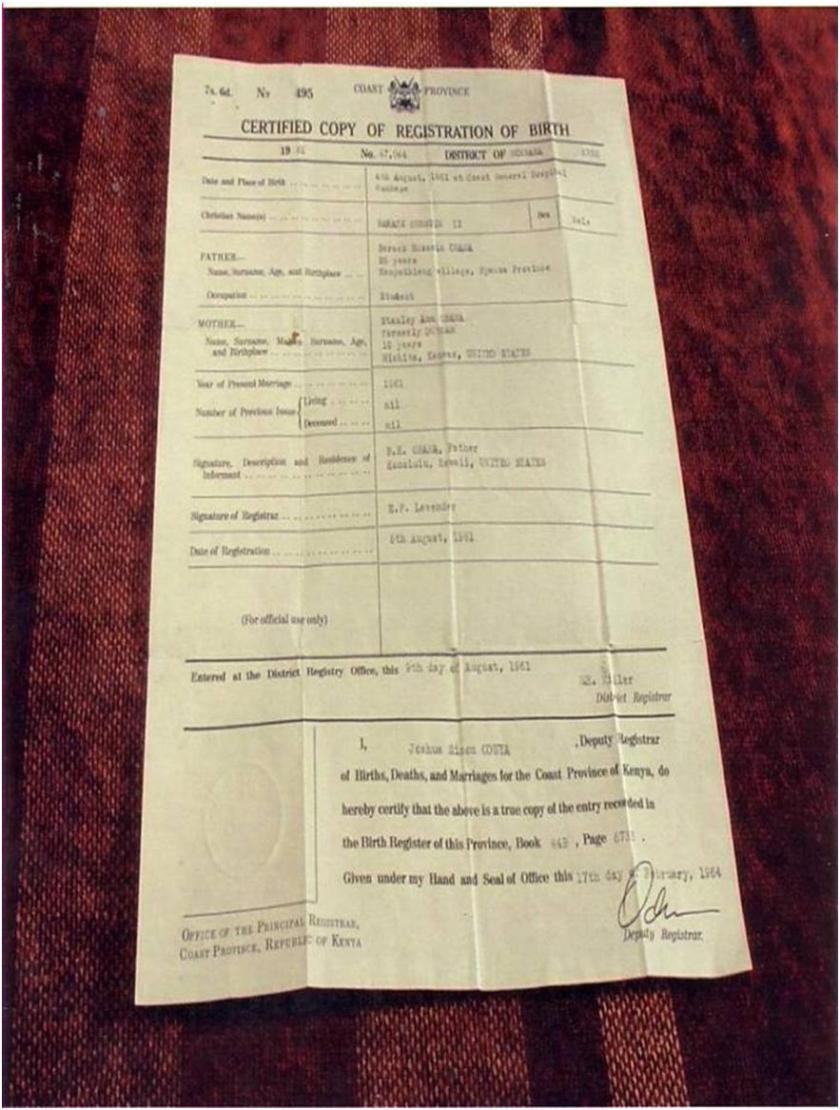 7s. 6d. No 495 COAST PROVINCE
CERTIFIED COPY OF REGISTRATION OF BIRTH
19 No. 47,044 DISTRICT OF
Date and Place of Birth 4th August, 1961 at Coast General Hospital
Christian Name(s) BARACK HUSSEIN II Sex Male
FATHER—
Barack Hussein OBAMA
years
Name, Surname, Age, and Birthplace village, Province
Occupation Student
MOTHER—
Stanley Ann OBAMA
formerly DUNHAM
Name, Surname, Maiden Surname, Age, and Birthplace
18 years
Wichita, Kansas, UNITED STATES
Year of Present Marriage 1961
Number of Previous Issue
Living nil
Deceased nil
Signature, Description and Residence of Informant
B.H. OBAMA, Father
Honolulu, Hawaii, UNITED STATES
Signature of Registrar E.F. Lavender
Date of Registration August, 1961
(For official use only)
Entered at the District Registry Office, this 9th day of August, 1961
District Registrar
I, Joshua Simon ODUYA , Deputy Registrar
of Births, Deaths, and Marriages for the Coast Province of Kenya, do
hereby certify that the above is a true copy of the entry recorded in
the Birth Register of this Province, Book 44B , Page .
Given under my Hand and Seal of Office this 17th day of February, 1964
Deputy Registrar.
OFFICE OF THE PRINCIPAL REGISTRAR,
COAST PROVINCE, REPUBLIC OF KENYA